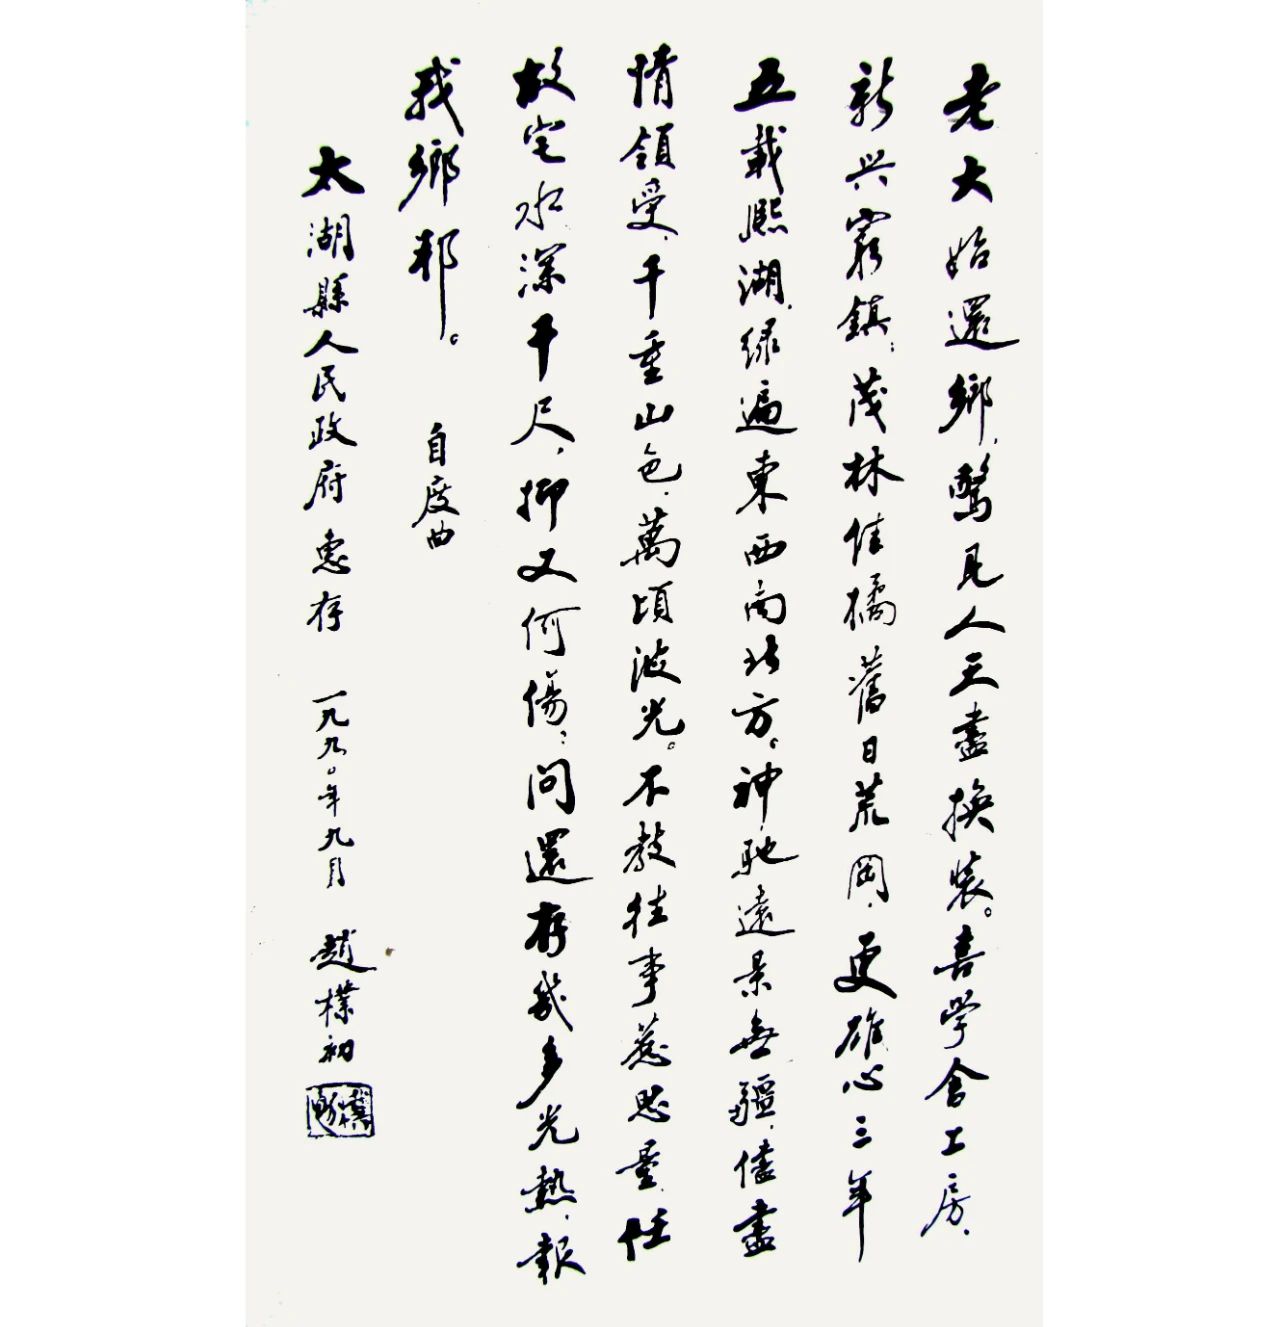 老大始還鄉，驚見人天盡換裝。喜學舍工房，
新興窮鎮；茂林佳橘舊日荒岡，更雄心三年
五載熙湖，綠遍東西南北方。神馳遠景無疆，儘盡
情領受，千重山色，萬頃波光。不教往事惹思量，任
故宅水深千尺，抑又何傷；問還存幾多光熱，報
我鄉邦。
自度曲
太湖縣人民政府惠存 一九九〇年九月 趙樸初